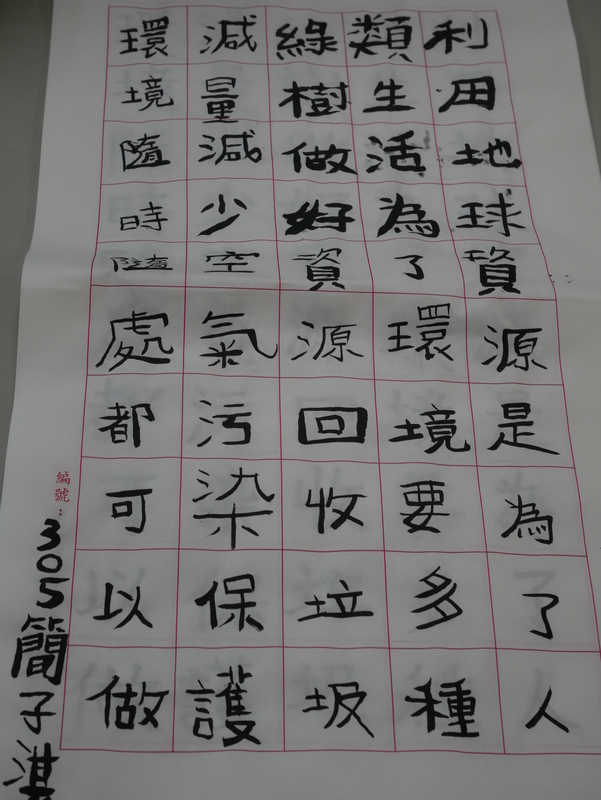 利用地球資源是為了人
類生活為了環境要多種
綠樹做好資源回收垃圾
減量減少空氣污染保護
環境隨時隨處都可以做
編號：305簡子